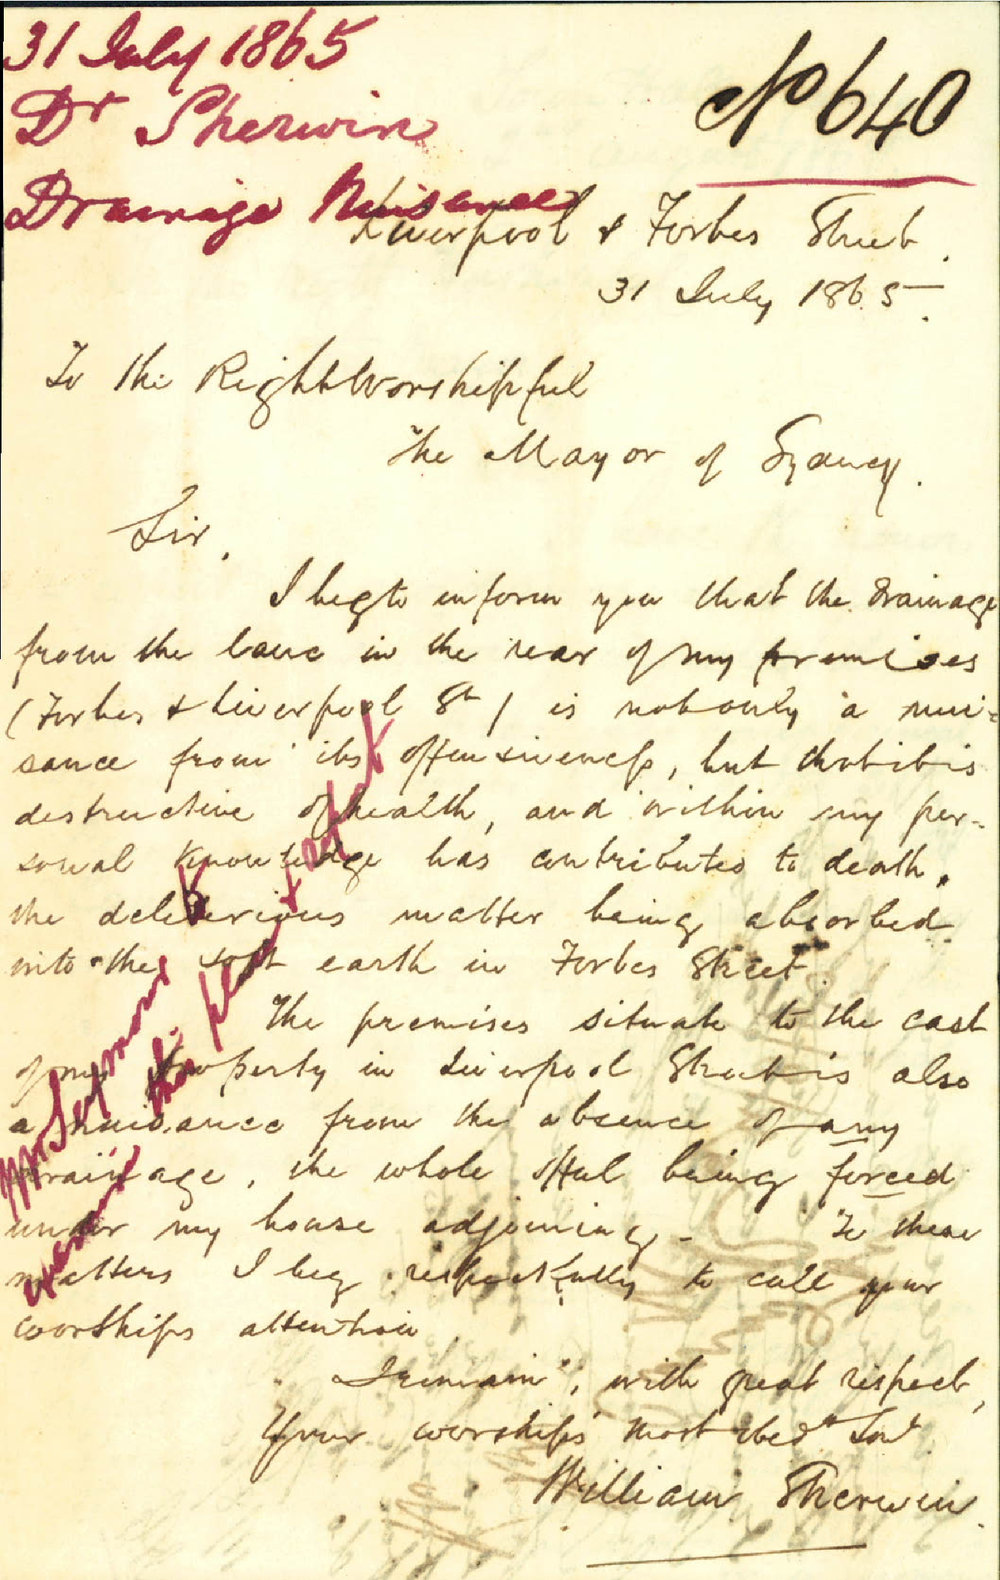 31 July 1865
Dr Sherwin
Drainage Nuisance
No 640
Liverpool & Forbes Street.
31 July 1865.
To the Right Worshipful
The Mayor of Sydney.
Sir,
I beg to inform you that the drainage
from the lane in the rear of my premises
(Forbes & Liverpool St) is not only a nui-
sance from its offensiveness, but that it is
destructive of health, and within my per-
sonal knowledge has contributed to death,
the deleterious matter being absorbed
into the soft earth in Forbes Street.
The premises situate to the east
of my property in Liverpool Street is also
a nuisance from the absence of any
drainage, the whole offal being forced
under my house adjoining - To these
matters I beg respectfully to call your
worships attention.
I remain, with great respect,
Your worships most obedt Sert
William Sherwin.
Mr Seymour
the place & report